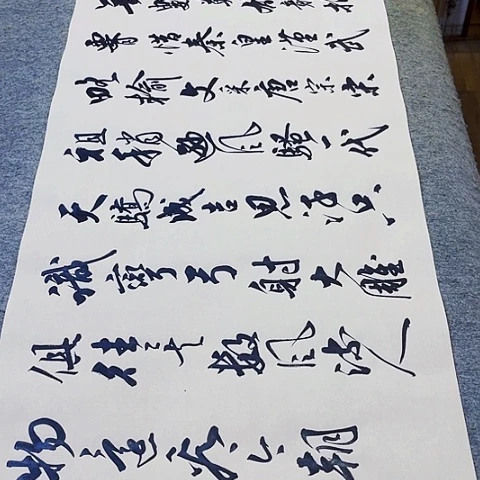 腰惜秦皇漢武
略輸文采唐宗宋
祖稍遜風騷一代
天驕成吉思汗只
識彎弓射大雕
俱往矣數風流人
物還看今朝